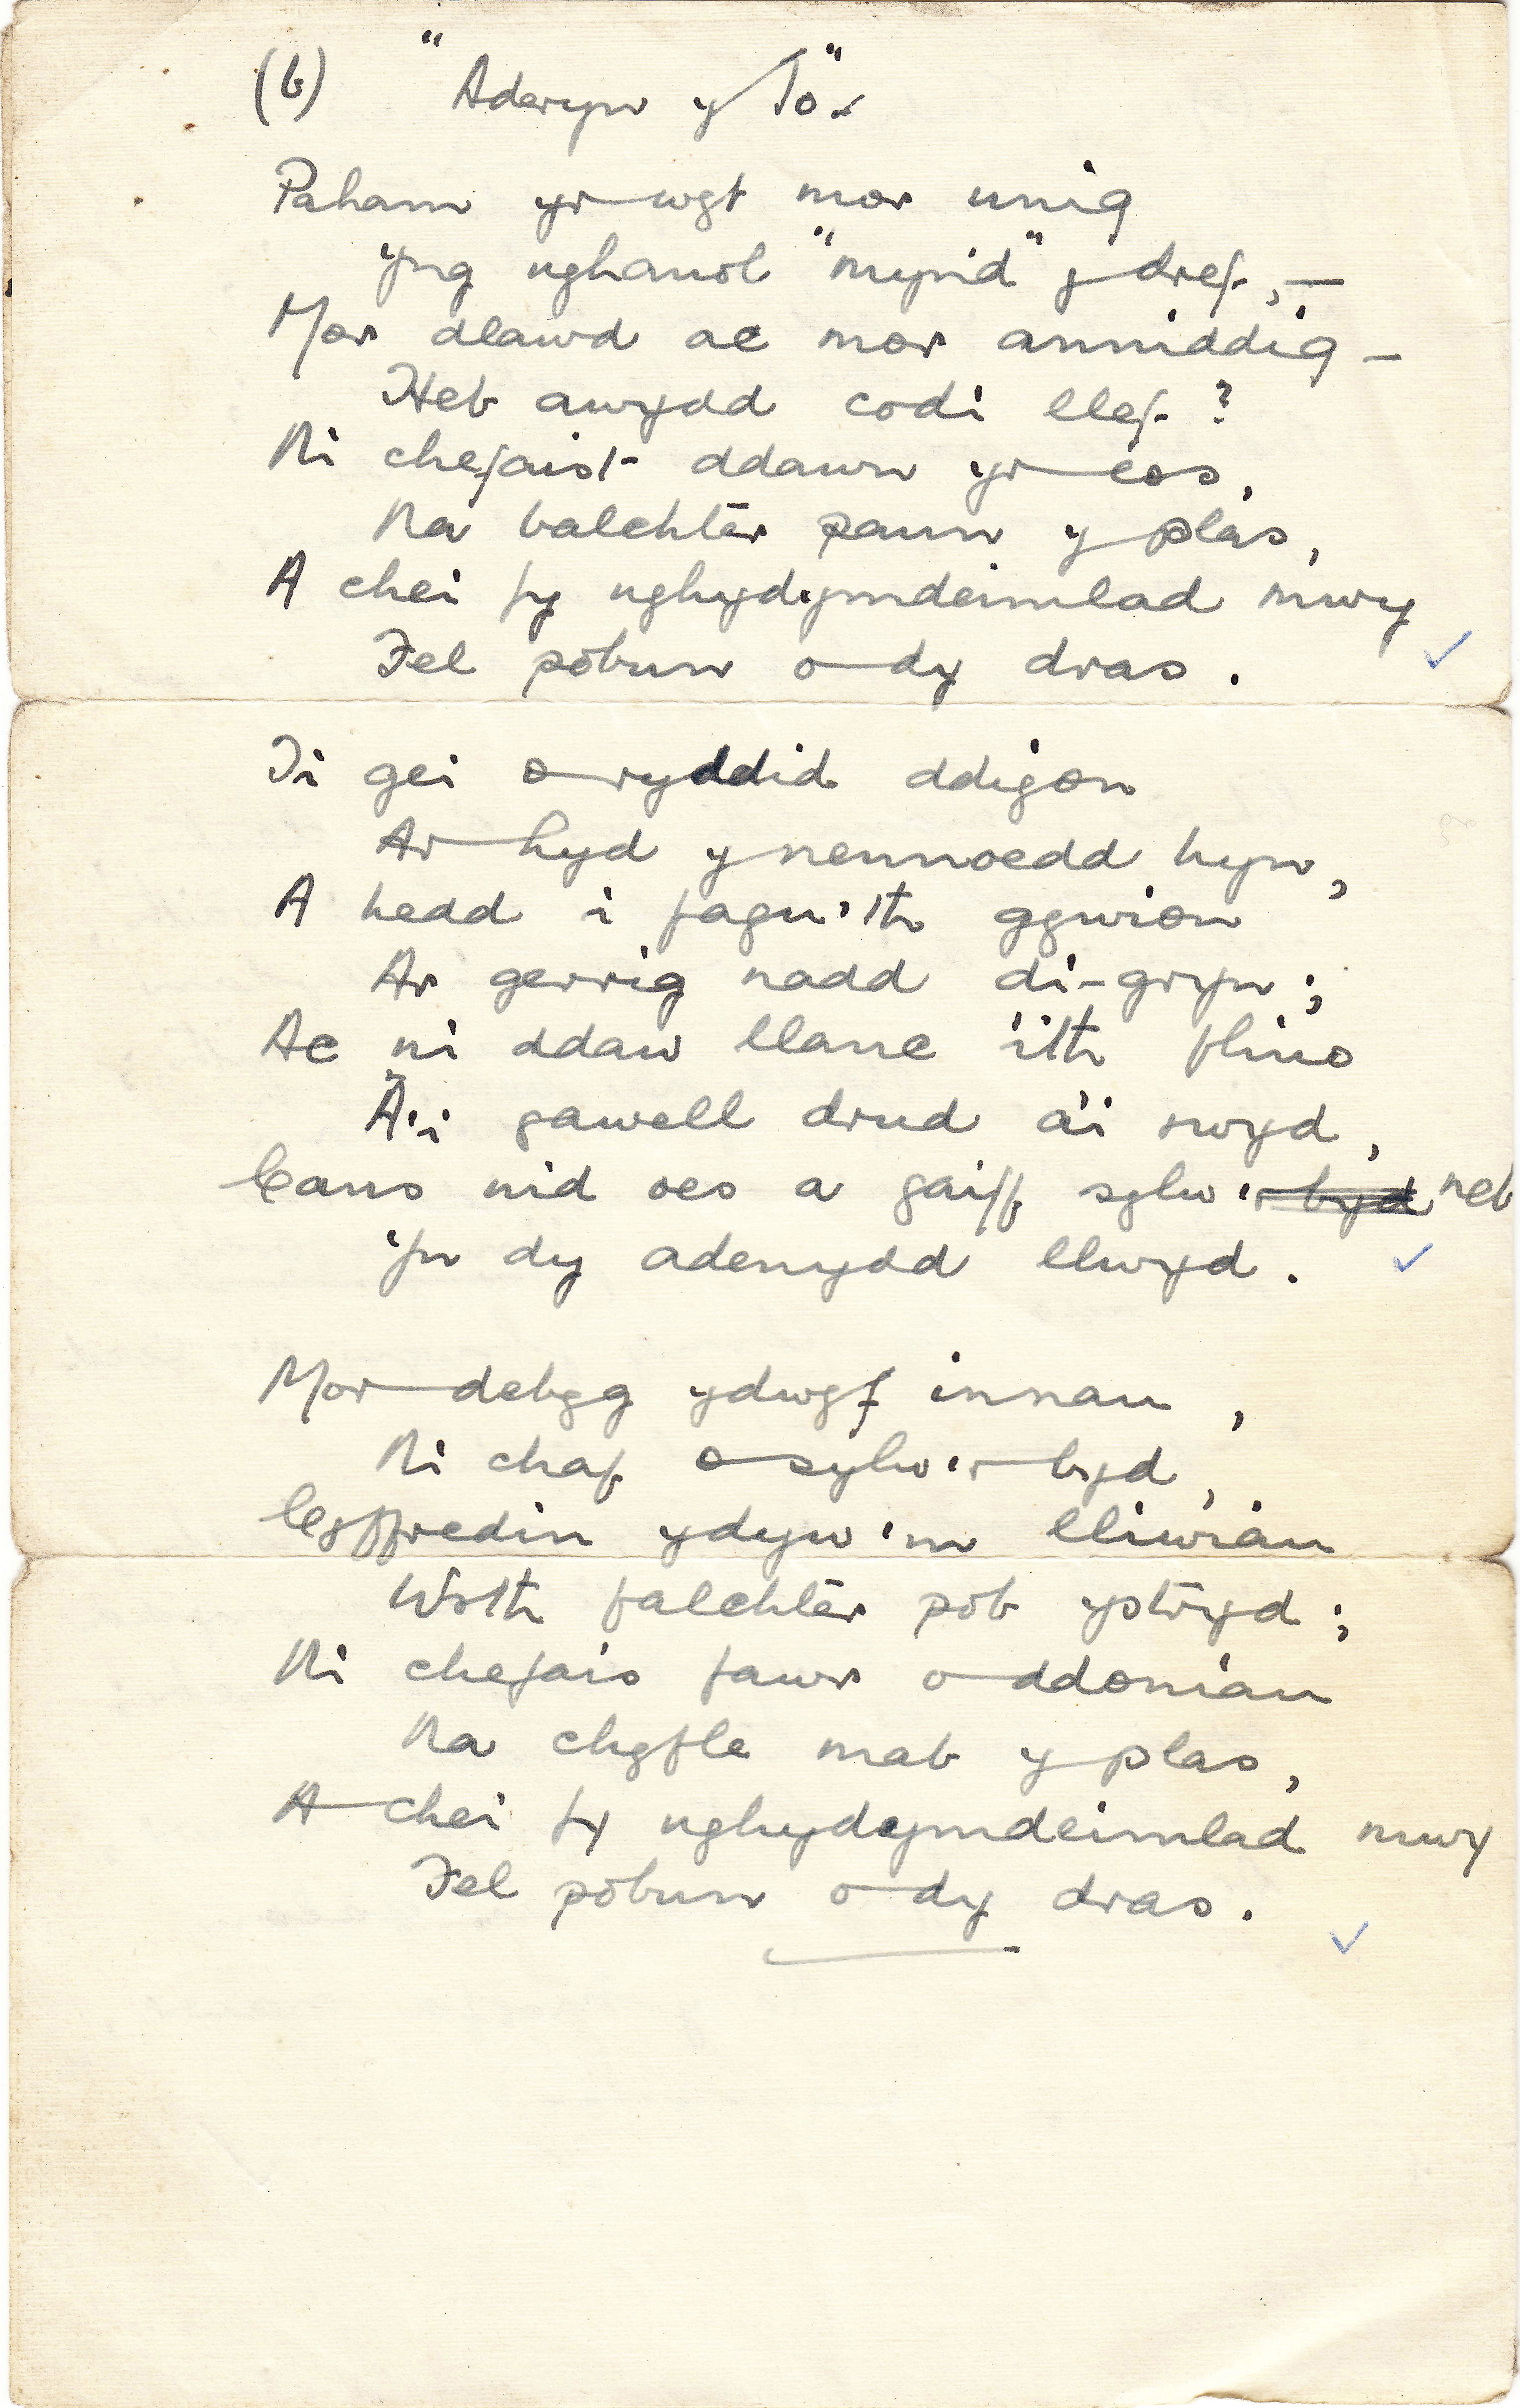 (b) "Aderyn y To."
Paham yr wyt mor unig
Yng nghanol "myrid" y dref, —
Mor dlawd ac mor anniddig —
Heb awydd codi llef?
Ni chefaist ddawn yr eos,
Na balchter paun y plas,
A chei fy nghydymdeimlad mwy
Fel pobun o dy dras.
Ti gei o ryddid ddigon
Ar hyd y nennoedd hyn,
A hedd i fagu'th gywion
Ar gerrig nadd di-gryn;
Ac ni ddaw llanc i'th flino
A'i gawell drud a'i rwyd,
Cans nid oes a gaiff sylw 'r byd neb
Yn dy adenydd llwyd.
Mor debyg ydwyf innau,
Ni chaf o sylw 'r byd,
Cyffredin ydyw 'm lliwiau
Wrth falchter pob ystryd;
Ni chefais fawr o ddoniau
Na chyfle mab y plas,
A chei fy nghydymdeimlad mwy
Fel pobun o dy dras.